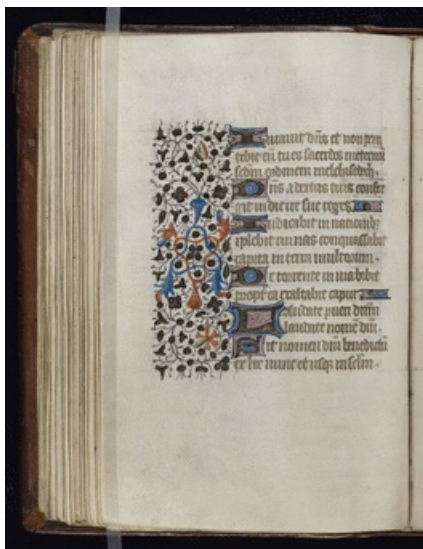 Iurauit dn̄s et non peni
tebit eū tu es sacerdos ineternū
scd̄m ordinem melchisedech.
Dn̄s a dextris tuis confre
git in die ire sue reges
Iudicabit in nationibꝫ
īplebit ruinas conquassabit
capita in terra multorum.
De torrente in uia bibit
propt̄ ea exaltabit caput
Laudate pueri dn̄m
laudate nomē dn̄i.
Sit nomen dn̄i benedictū
ex hoc nunc et usqꝫ in sclm̄.